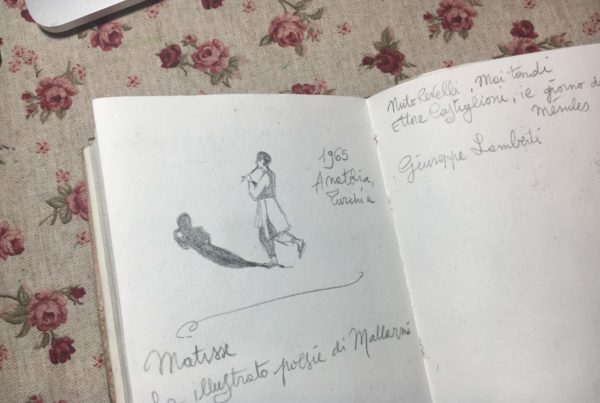 1965
Anatolia,
Turchia
Matisse
ha illustrato poesie di Mallarmé
Nuto Revelli, Mai tardi
Ettore Castiglioni, il giorno d
Mésules
Giuseppe Lamberti